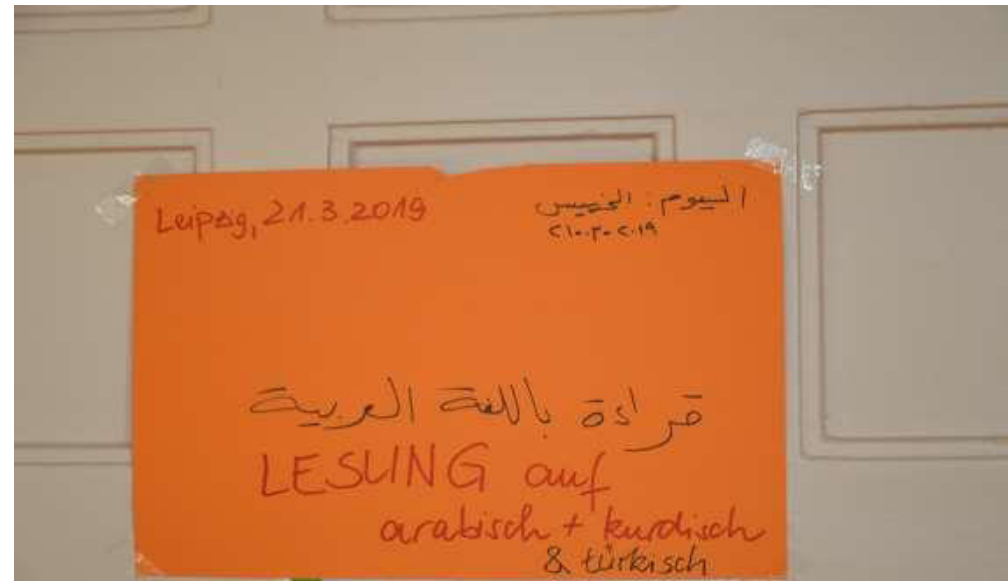 Leipzig, 21.3.2019
اليوم: الخميس
٢١.٠٣.٢٠١٩
قراءة باللغة العربية
LESUNG auf
arabisch + kurdisch
& türkisch